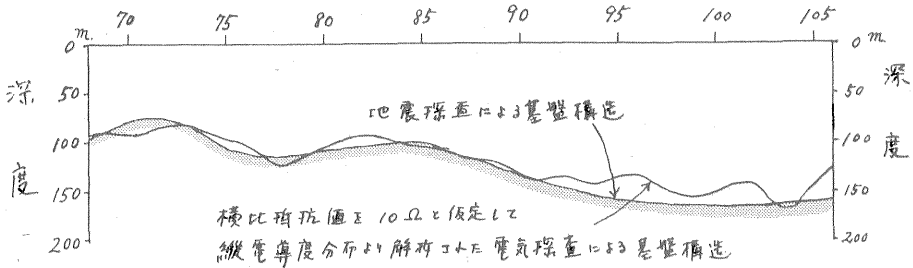 70 75 80 85 90 95 100 105
m. 0 0 m.
50 50
100 100
150 150
200 200
深度
深度
地震探査による基盤構造
横比抵抗値を10Ωと仮定して
縦電導度分布より解析された電気探査による基盤構造